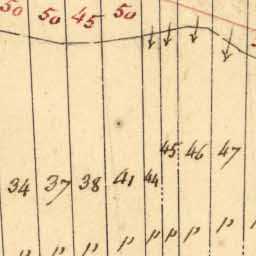 50 50 45 50
45 46 47
34 37 38 41 44
p p p p p p p p p